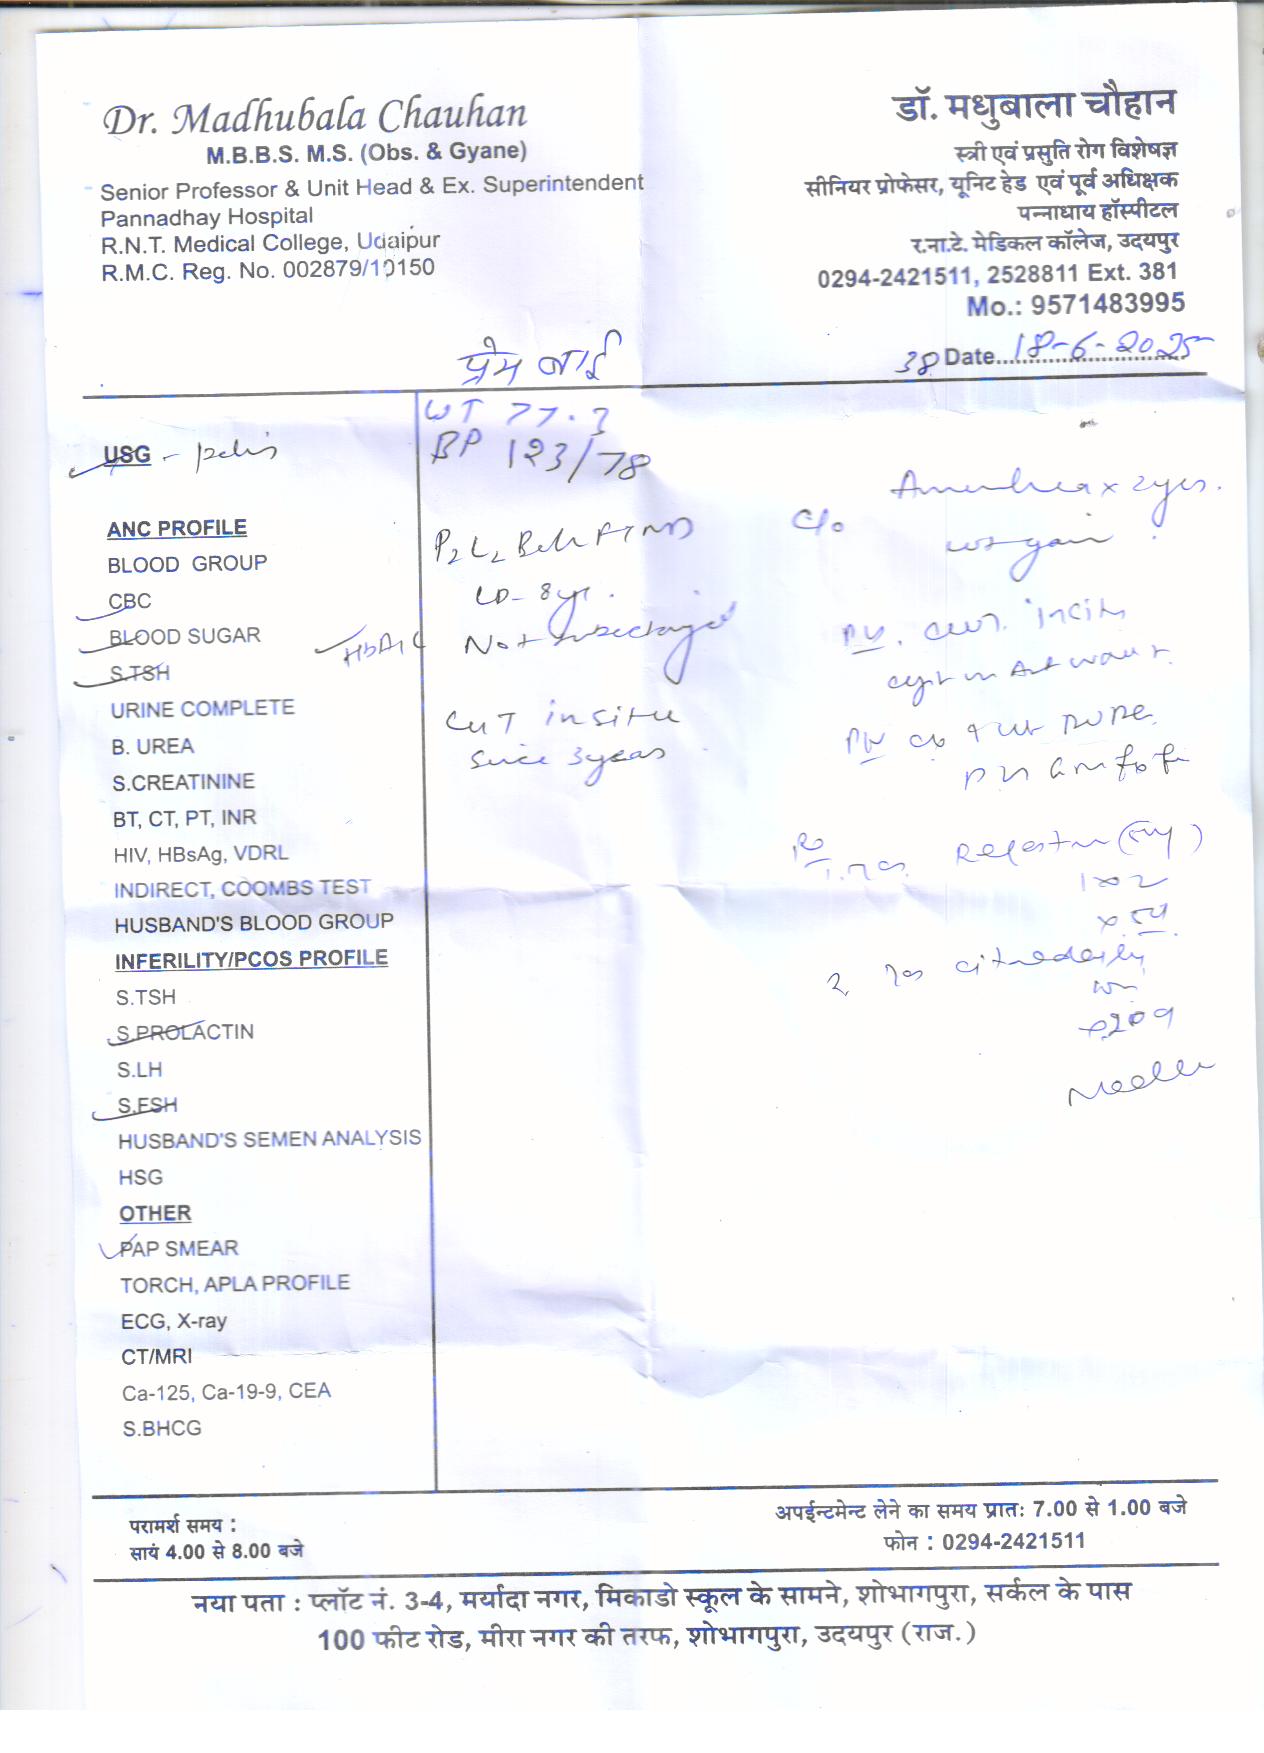 Dr. Madhubala Chauhan
M.B.B.S. M.S. (Obs. & Gyane)
Senior Professor & Unit Head & Ex. Superintendent
Pannadhay Hospital
R.N.T. Medical College, Udaipur
R.M.C. Reg. No. 002879/10150
डॉ. मधुबाला चौहान
स्त्री एवं प्रसुति रोग विशेषज्ञ
सीनियर प्रोफेसर, यूनिट हेड एवं पूर्व अधिक्षक
पन्नाधाय हॉस्पीटल
र.ना.टे. मेडिकल कॉलेज, उदयपुर
0294-2421511, 2528811 Ext. 381
Mo.: 9571483995
प्रेम बाई
38 Date 18-6-2025
USG - pelvis
ANC PROFILE
BLOOD GROUP
CBC
BLOOD SUGAR HbA1C
S.TSH
URINE COMPLETE
B. UREA
S.CREATININE
BT, CT, PT, INR
HIV, HBsAg, VDRL
INDIRECT, COOMBS TEST
HUSBAND'S BLOOD GROUP
INFERILITY/PCOS PROFILE
S.TSH
S.PROLACTIN
S.LH
S.FSH
HUSBAND'S SEMEN ANALYSIS
HSG
OTHER
PAP SMEAR
TORCH, APLA PROFILE
ECG, X-ray
CT/MRI
Ca-125, Ca-19-9, CEA
S.BHCG
WT 77.3
BP 123/78
P2L2 Both FTND
LD- 8yr.
Not
CuT in situ
Since 3years
C/o Amenorrhea x 2yrs.
wt gain
P/S. in situ
Rx
1.
2
अपईन्टमेन्ट लेने का समय प्रातः 7.00 से 1.00 बजे
फोन : 0294-2421511
परामर्श समय :
सायं 4.00 से 8.00 बजे
नया पता : प्लॉट नं. 3-4, मर्यादा नगर, मिकाडो स्कूल के सामने, शोभागपुरा, सर्कल के पास
100 फीट रोड, मीरा नगर की तरफ, शोभागपुरा, उदयपुर (राज.)